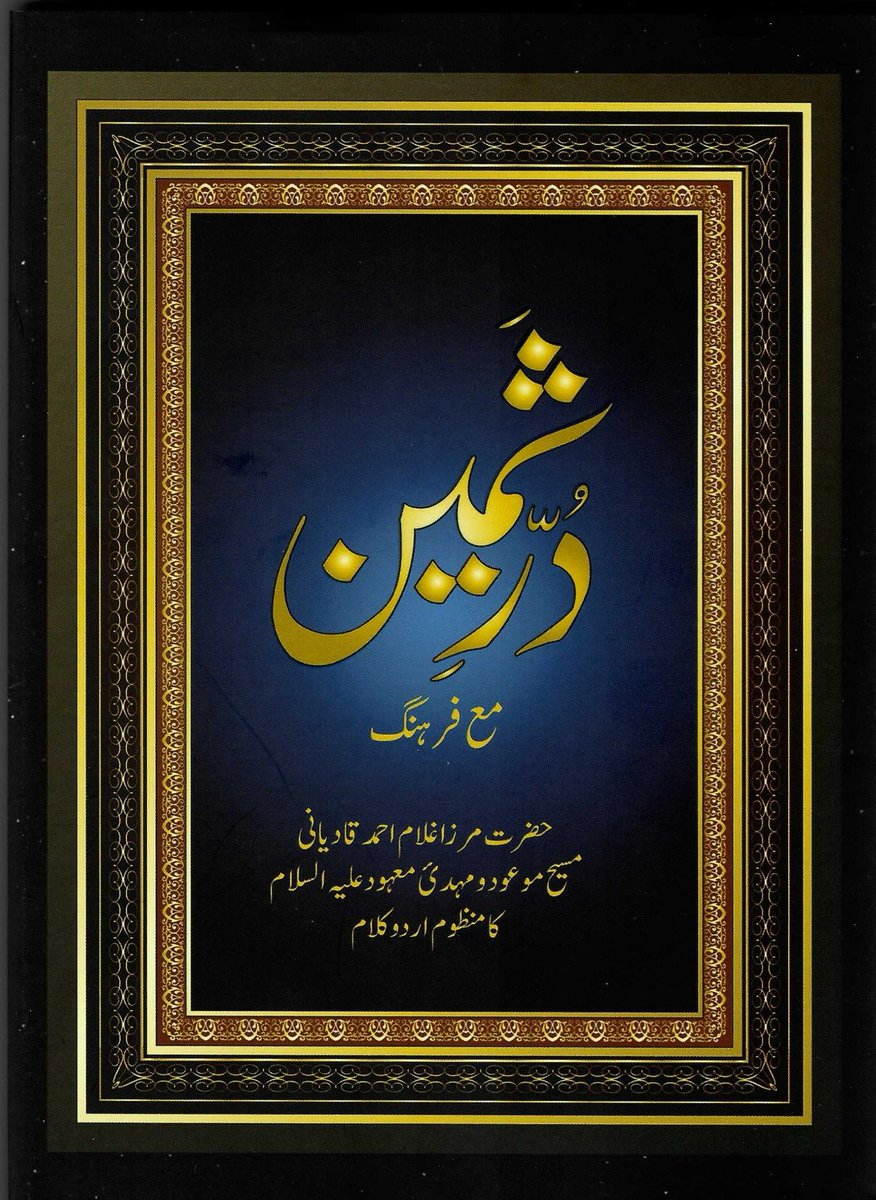 دُرِّثَمین
مع فرہنگ
حضرت مرزا غلام احمد قادیانی
مسیح موعود و مہدیٔ معہود علیہ السلام
کا منظوم اردو کلام